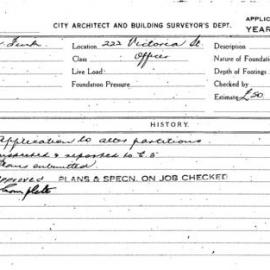 CITY ARCHITECT AND BUILDING SURVEYOR'S DEPT. APPLIC
YEAR
Location 222 Victoria St. Description
Class Offices Nature of Foundation
Live Load Depth of Footings
Foundation Pressure Checked by
Estimate £50
HISTORY.
Application to alter partitions
Inspected & reported to C.S
Plans submitted
Approved PLANS & SPECN. ON JOB CHECKED
Complete